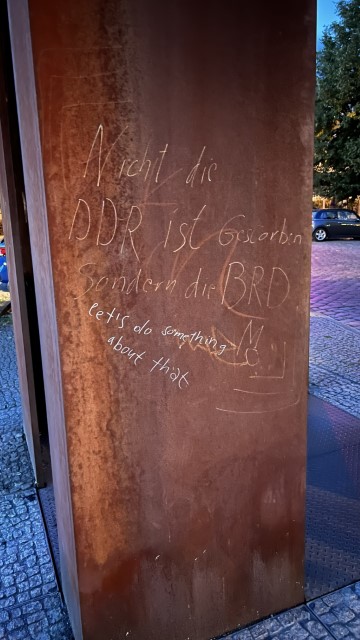 Nicht die
DDR ist Gestorben
Sondern die BRD
let's do something
about that